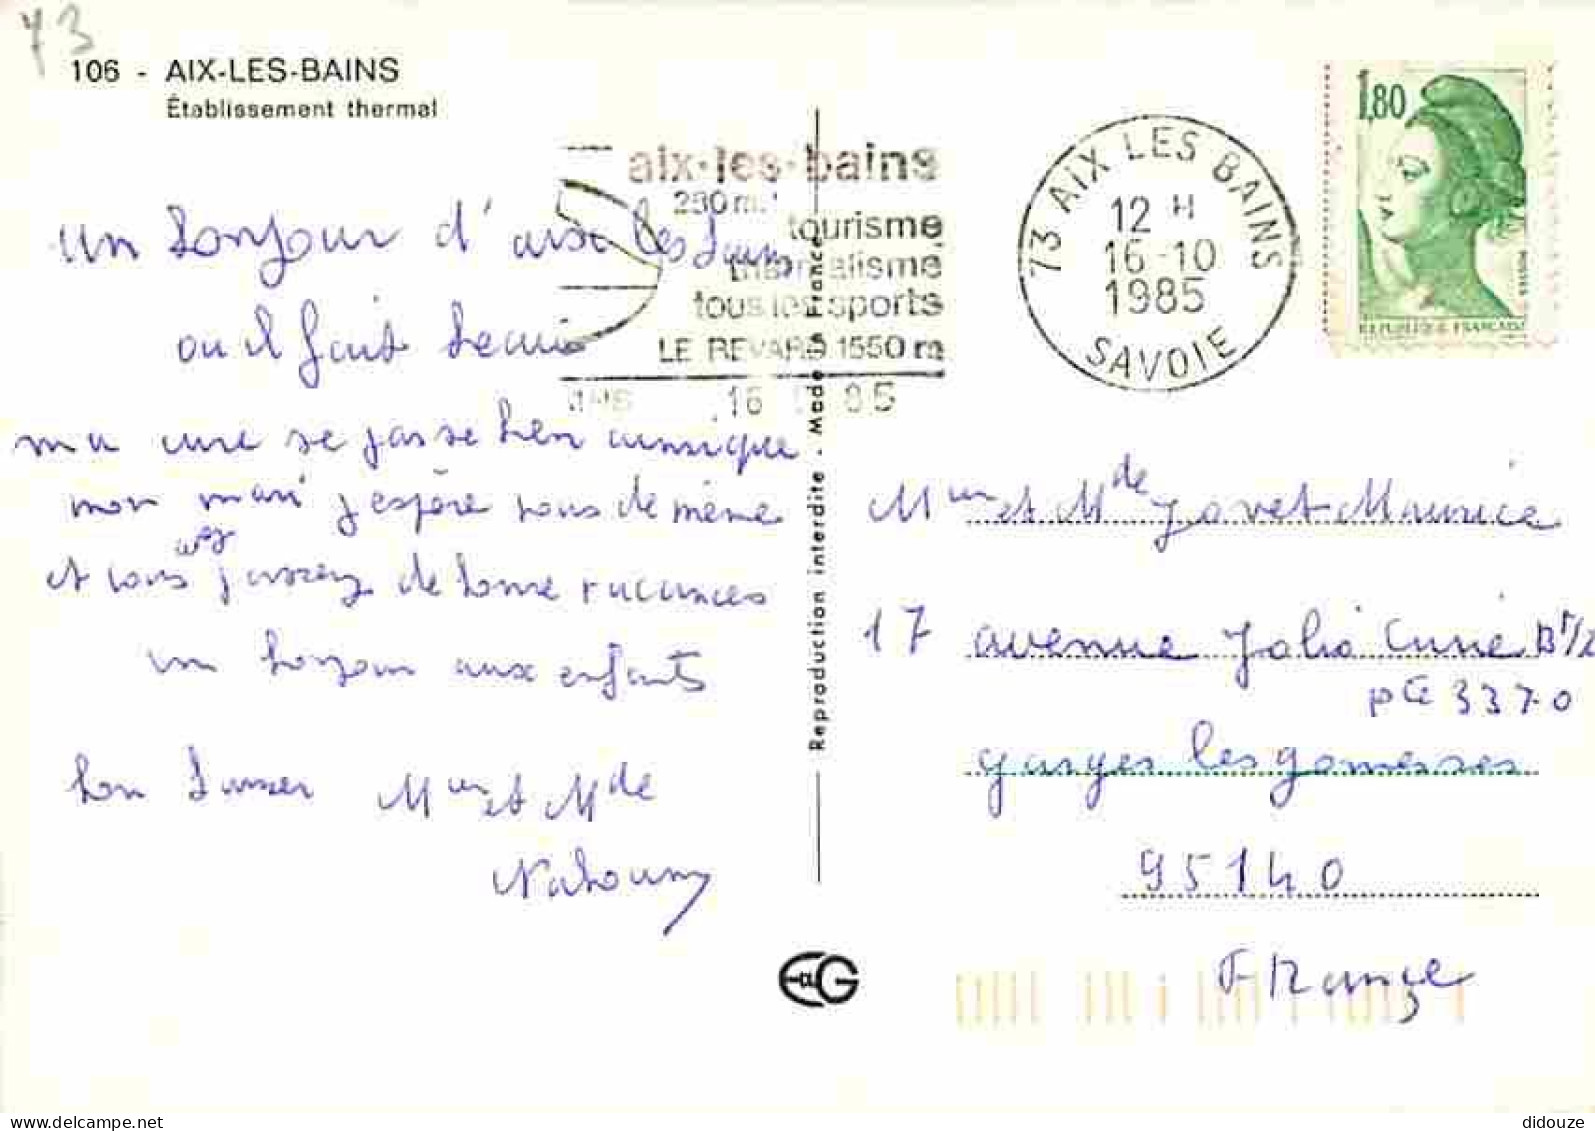 73
106 - AIX-LES-BAINS
Établissement thermal
aix-les-bains
tourisme
thermalisme
tous les sports
LE REVARD 1550 m
16 85
73 AIX LES BAINS
12 H
16-10
1985
SAVOIE
1,80
REPUBLIQUE FRANÇAISE
un bonjour d'aix les bains
ou il fait beau
ma cure se passe bien ainsi que
mon mari j'espère vous de même
et vous avez passez de bonne vacances
un bonjour aux enfants
bon baiser Mur et Mde
Nahoum
Reproduction interdite - Made in France
Mur et Mde Jovet Maurice
17 avenue Jolio Curie Bt/2
pte 3370
garges les gonesses
95140
France
didouze